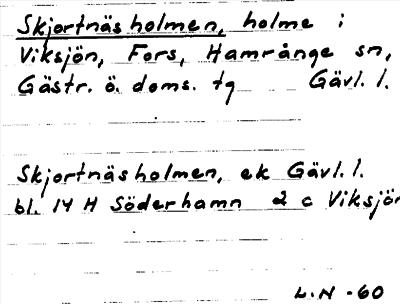 Skjortnäsholmen, holme i
Viksjön, Fors, Hamrånge sn,
Gästr. ö. doms. tg Gävl. l.
Skjortnäsholmen, ek Gävl. l.
bl. 14 H Söderhamn 2 c Viksjön
L.N -60